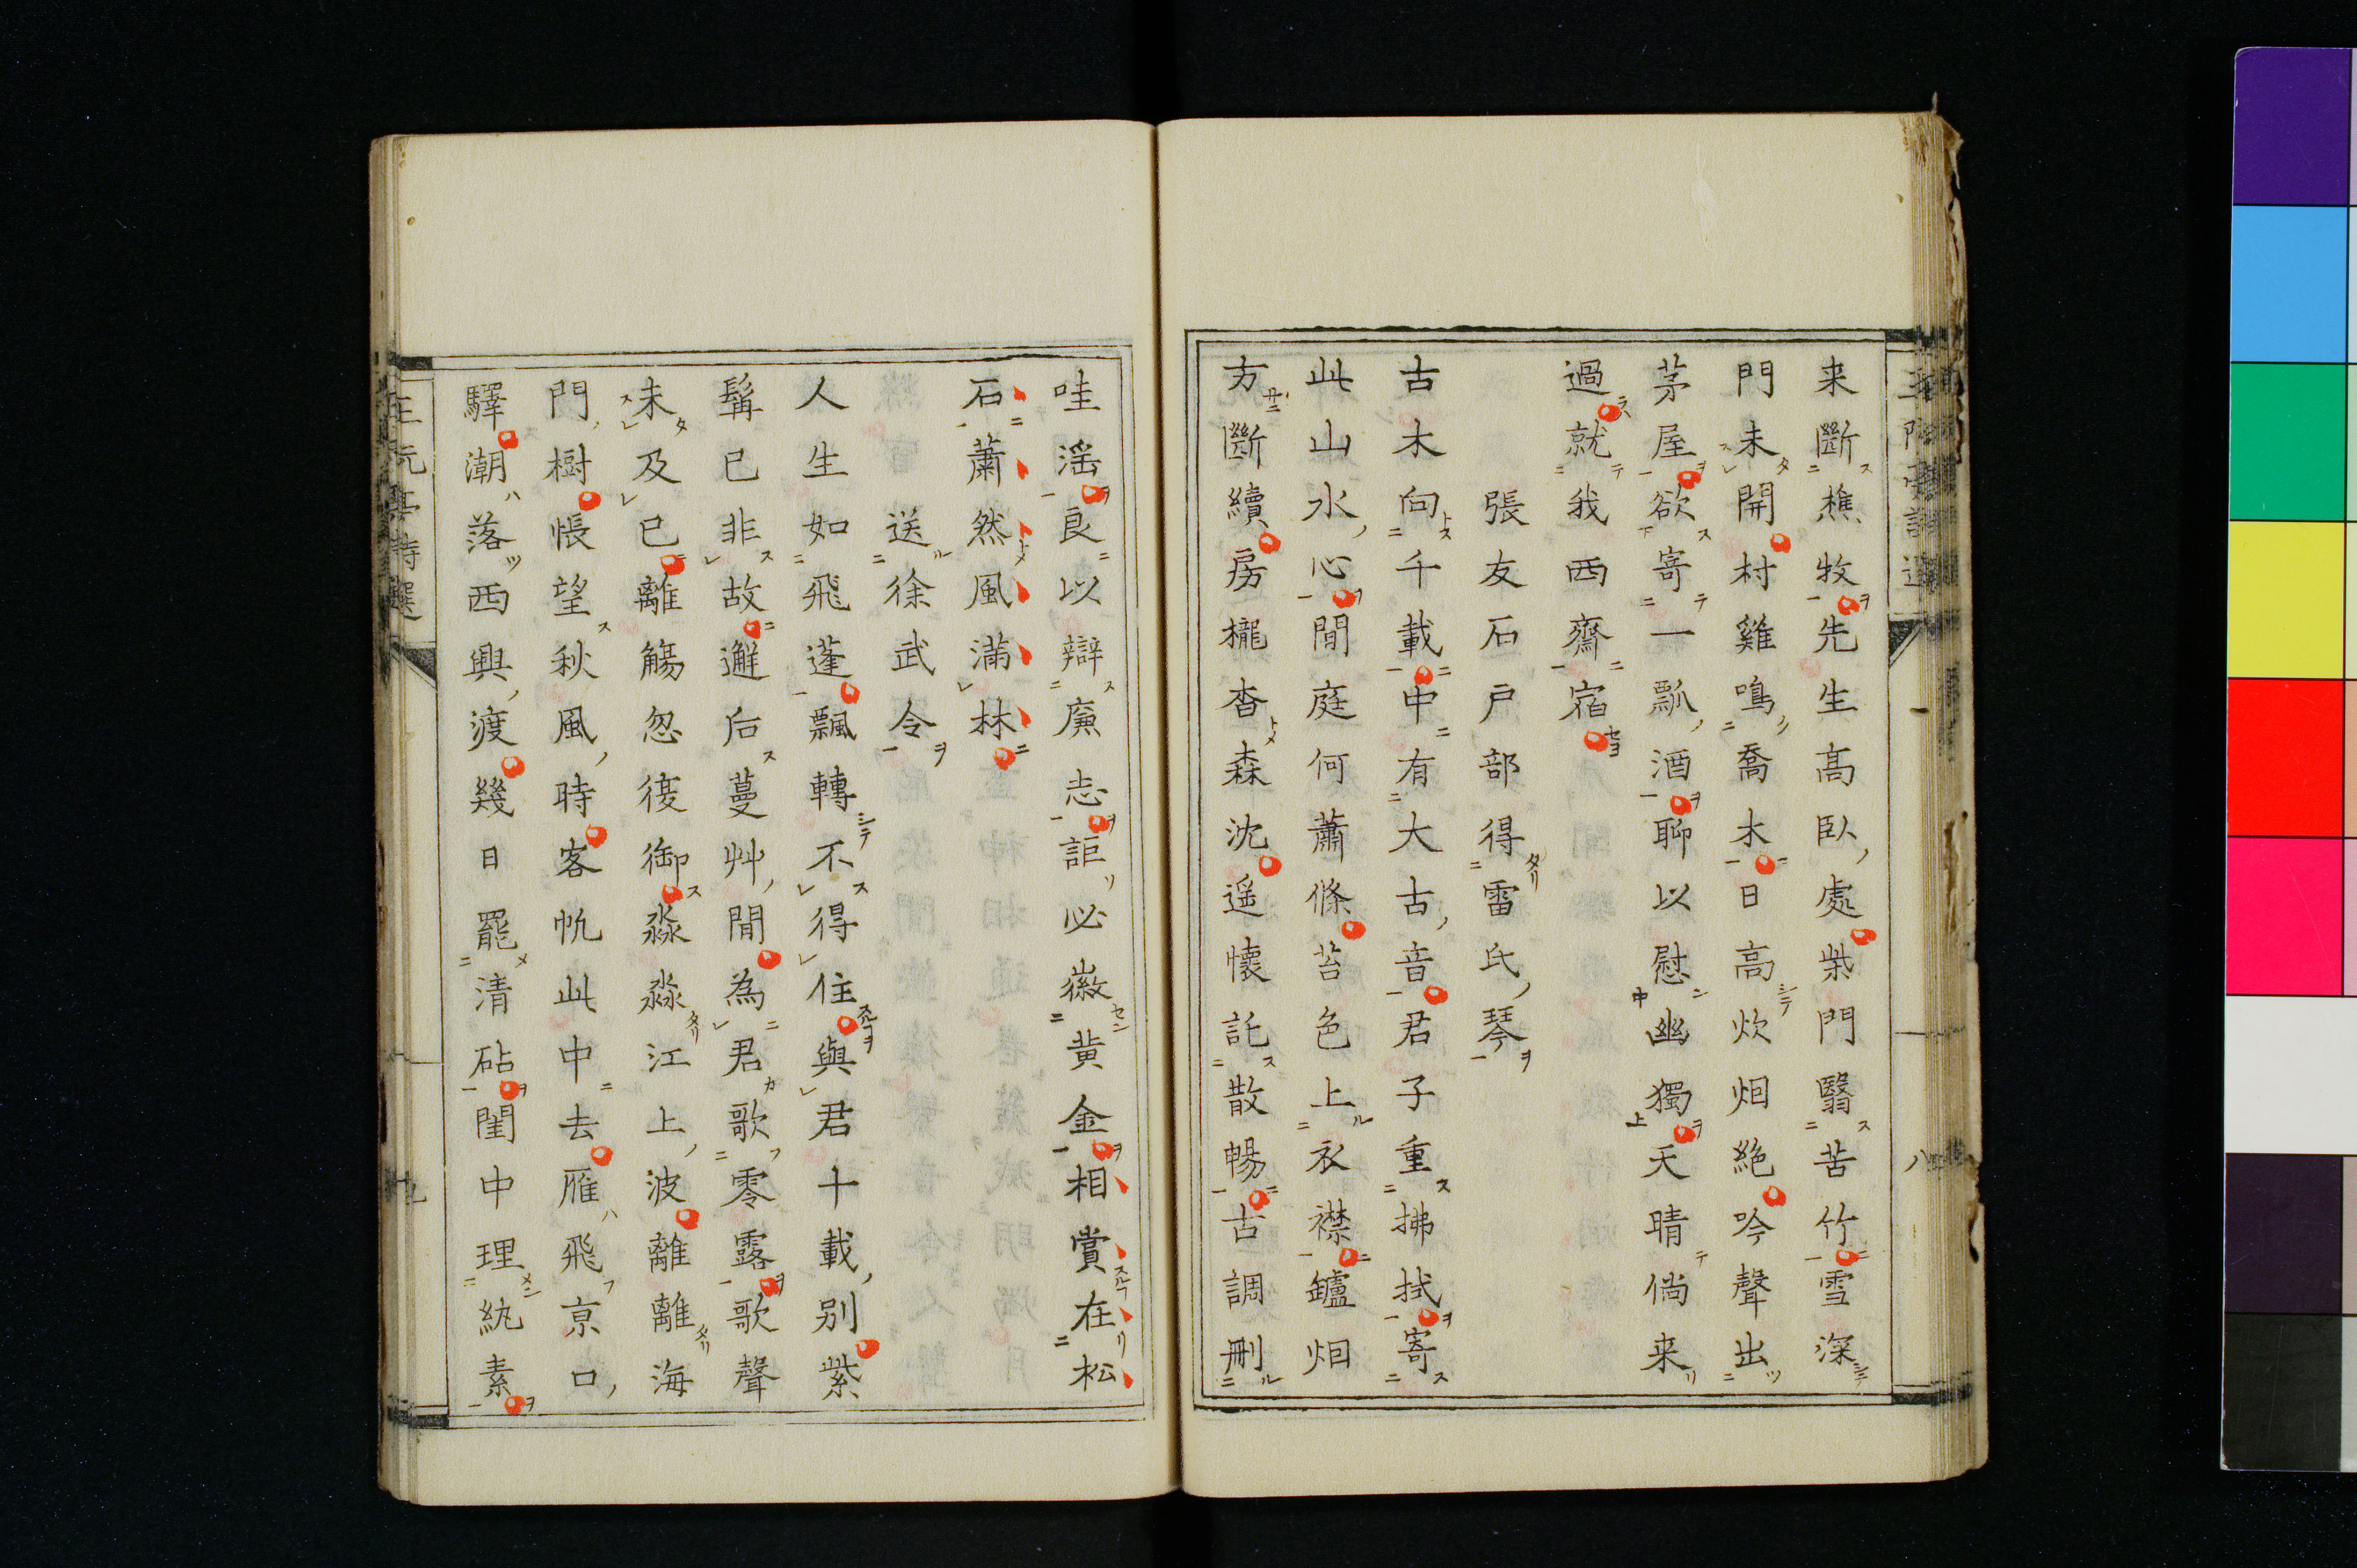 来斷樵牧先生高臥處柴門翳苦竹雪深
門未開村雞鳴喬木日高炊烟絶吟聲出
茅屋欲寄一瓢酒聊以慰幽獨天晴倘来
過就我西齋宿
張友石戸部得雷氏琴
古木向千載中有大古音君子重拂拭寄
此山水心閒庭何蕭條苔色上衣襟鑪烟
方斷續房櫳杳森沈遥懷託散暢古調刪
哇淫良以辯廉志詎必徽黄金相賞在松
石蕭然風滿林
送徐武令
人生如飛蓬飄轉不得住與君十載別紫
髯已非故邂逅蔓艸間為君歌零露歌聲
未及已離觴忽復御淼淼江上波離離海
門樹悵望秋風時客帆此中去雁飛京口
驛潮落西興渡幾日罷清砧閨中理紈素
王阮亭詩選
八
王阮亭詩選
九